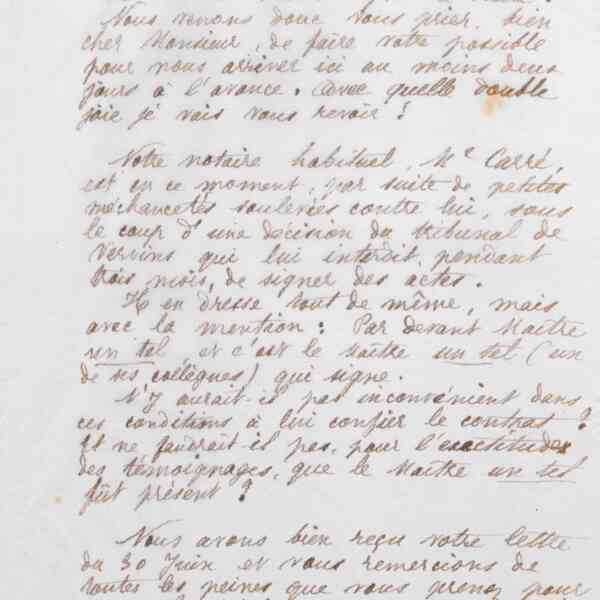 Nous venons donc vous prier, bien
cher Monsieur, de faire votre possible
pour nous arriver ici au moins deux
jours à l'avance. Avec quelle double
joie je vais vous revoir !
Notre notaire habituel, Me Carré,
est en ce moment, par suite de petites
méchancetés soulevées contre lui, sous
le coup d'une décision du tribunal de
Vervins qui lui interdit, pendant
trois mois, de signer des actes.
Il en dresse tout de même, mais
avec la mention : Par devant Maître
un tel, et c'est le Maître un tel (un
de ses collègues) qui signe.
N'y aurait-il pas inconvénient dans
ces conditions à lui confier le contrat ?
Et ne faudrait-il pas, pour l'exactitude
des témoignages, que le Maître un tel
fût présent ?
Nous avons bien reçu votre lettre
du 30 Juin et vous remercions de
toutes les peines que vous prenez pour